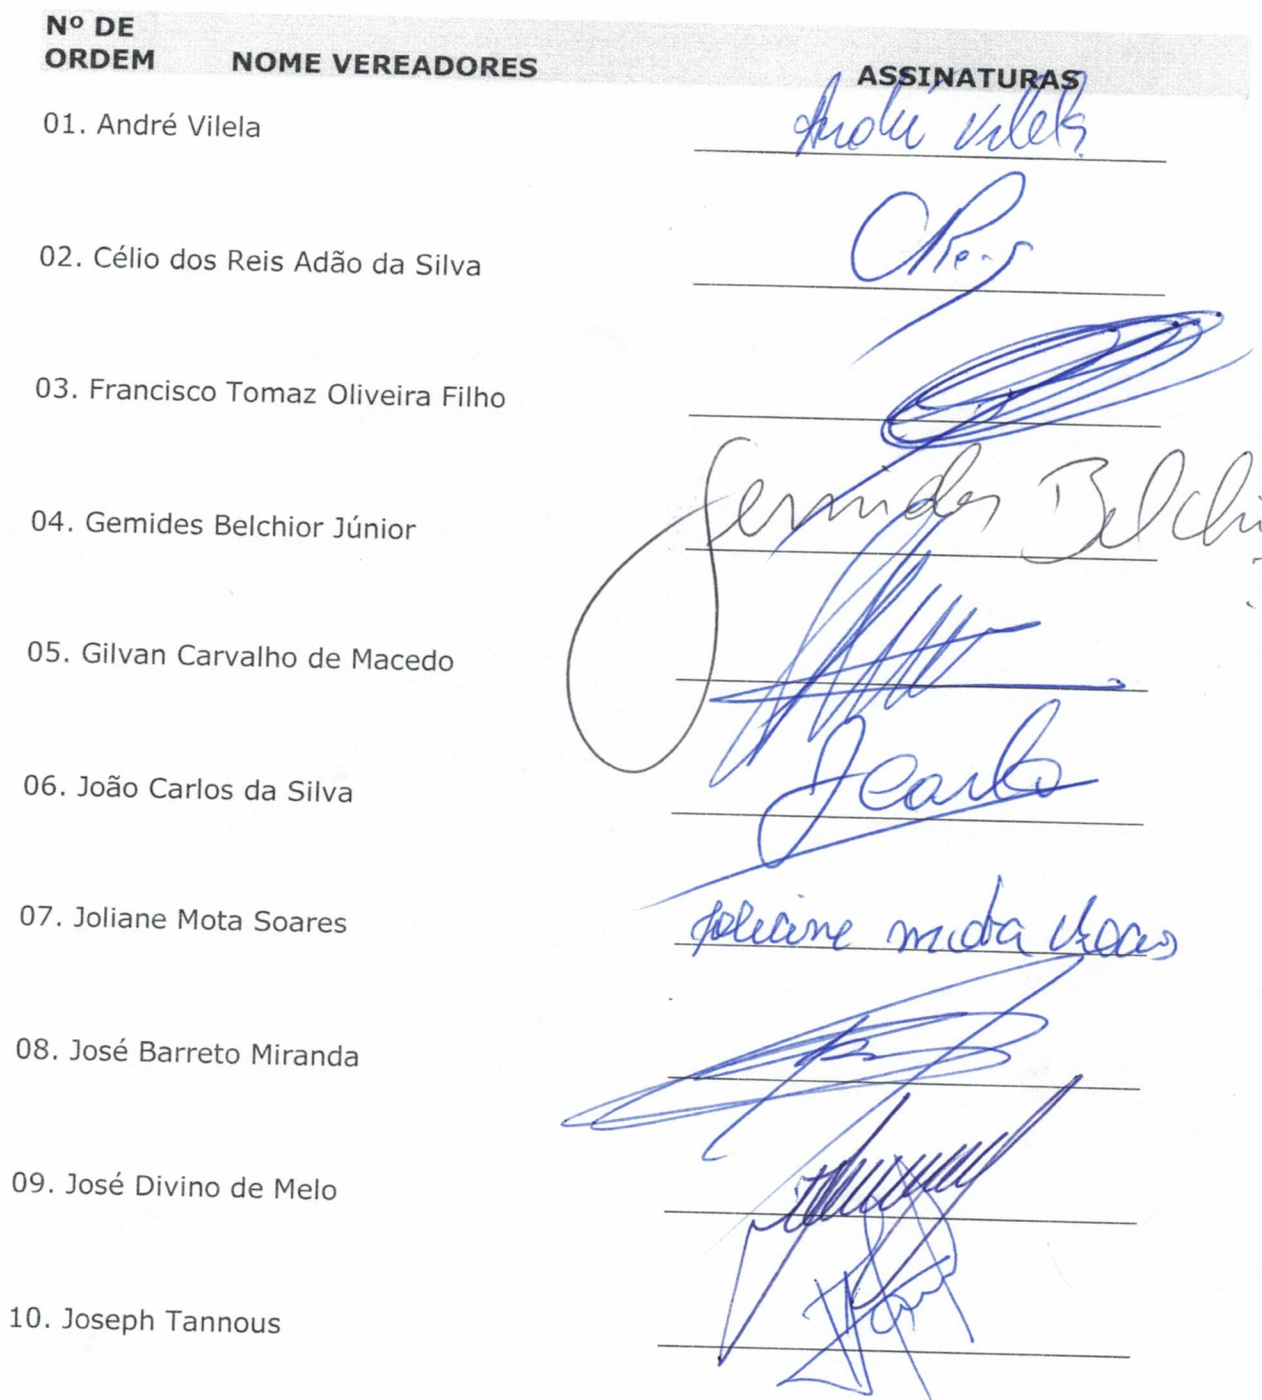 Nº DE
ORDEM NOME VEREADORES ASSINATURAS
01. André Vilela André Vilela
02. Célio dos Reis Adão da Silva
03. Francisco Tomaz Oliveira Filho
04. Gemides Belchior Júnior Gemides Belchi
05. Gilvan Carvalho de Macedo
06. João Carlos da Silva
07. Joliane Mota Soares Joliane Mota Soares
08. José Barreto Miranda
09. José Divino de Melo
10. Joseph Tannous